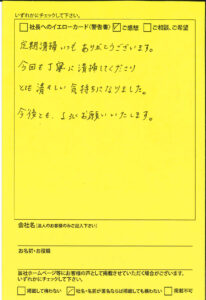 いずれかにチェックして下さい。
□社長へのイエローカード(警告書) ☑ご感想 □ご相談、ご希望
定期清掃いつもありがとうございます。
今回も丁寧に清掃してくださり
とても清々しい気持ちになりました。
今後とも、よろしくお願いいたします。
会社名(法人のお客様のみご記入下さい)
お名前・お役職
当社ホームページ等にお客様の声として掲載させていただく場合がございます。
いずれかにチェックして下さい。
□掲載して構わない ☑社名・名前が匿名ならば掲載しても構わない □掲載不可